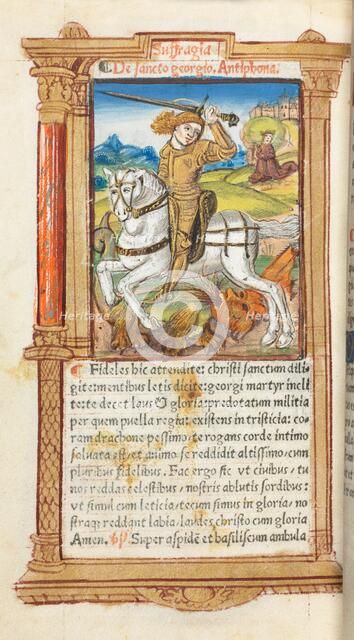 Suffragia
¶ De sancto georgio. Antiphona.
¶ Fideles hic attendite: christi sanctum dili-
gite: mentibus letis dicite: georgi martyr incli
te: te decet laus & gloria: predotatum militia
per quem puella regia: existens in tristicia: co-
ram drachone pessimo: te rogans corde intimo
saluata est, et animo se reddidit altissimo: cum
pluribus fidelibus. Fac ergo sic vt ciuibus, tu
nos reddas celestibus, nostris ablutis sordibus:
vt simul cum leticia, tecum simus in gloria, no
straq; reddant labia, laudes christo cum gloria
Amen. ỽ. Super aspidē et basiliscum ambula
Heritage
Heritage
Heritage